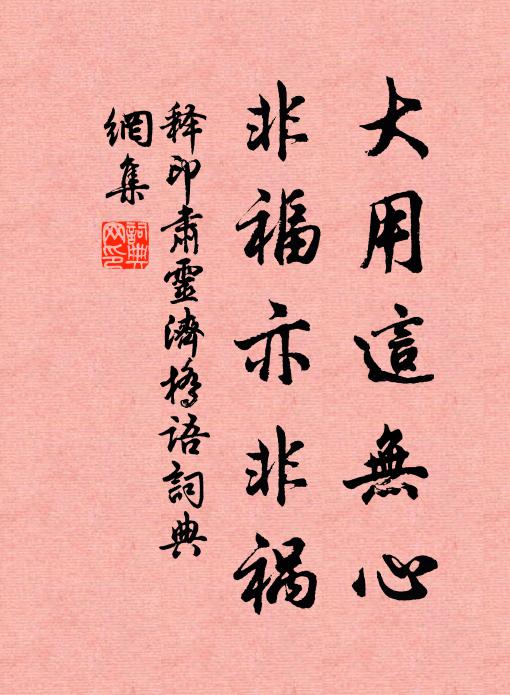 大用這無心
非福亦非禍
释印肅靈濟橋语詞典
網集
詞典
网印